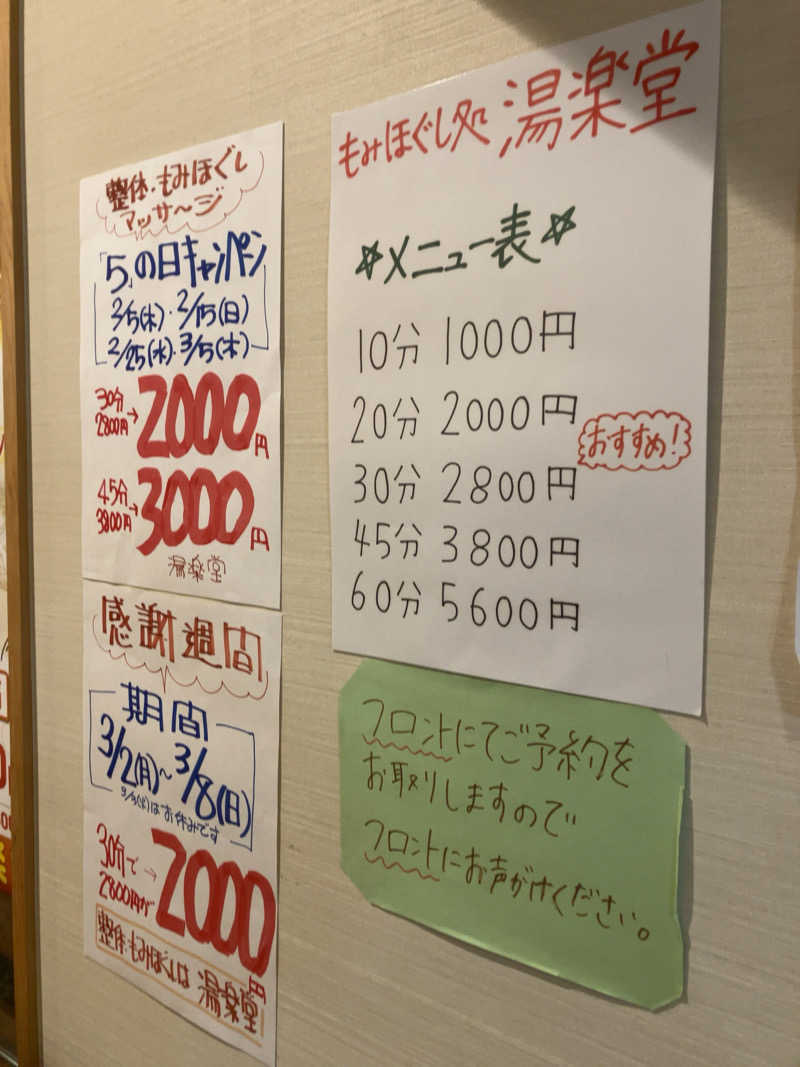 整体・もみほぐし
マッサ〜ジ
「5」の日キャンペーン
2/5(木)・2/15(日)
2/25(水)・3/5(木)
30分
2800円→2000円
45分
3800円→3000円
湯楽堂
感謝週間
期間
3/2(月)〜3/8(日)
はお休みです
30分で→
2800円が2000円
整体・もみほぐしは湯楽堂
もみほぐし処 湯楽堂
☆メニュー表☆
10分 1000円
20分 2000円
おすすめ!
30分 2800円
45分 3800円
60分 5600円
フロントにてご予約を
お取りしますので
フロントにお声がけください。